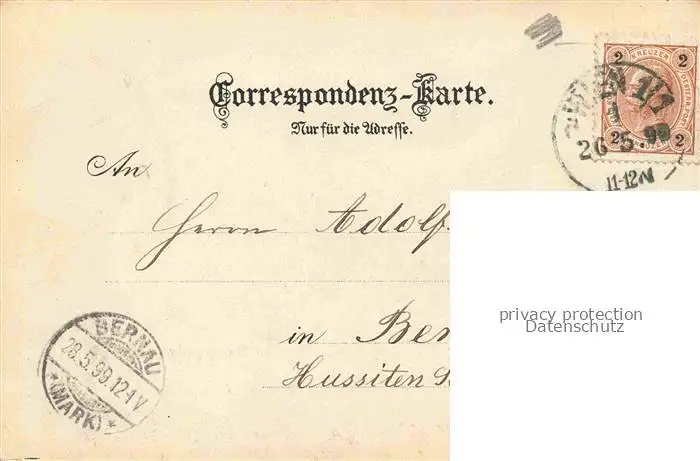 Correspondenz-Karte.
Nur für die Adresse.
2 KREUZER 2
2 2
WIEN 1/1
26.5.99
11-12N
An
Herrn Adolf
in Ber
Hussiten S
BERNAU
28.5.99.12-1V
*(MARK)*
privacy protection
Datenschutz